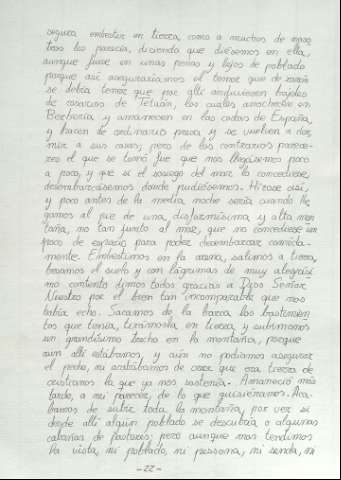 segura embestir en tierra, como a muchos de noso
tros les parecía, diciendo que diésemos en ella,
aunque fuese en unas peñas y lejos de poblado
porque así aseguraríamos el temor que de razón
se debía temer que por allí anduviesen bajeles
de cosarios de Tetuán, los cuales anochecen en
Berbería y amanecen en las costas de España,
y hacen de ordinario presa, y se vuelven a dor
mir a sus casas; pero de los contrarios parece-
res el que se tomó fue que nos llegásemos poco
a poco, y que si el sosiego del mar lo concediese,
desembarcásemos donde pudiésemos. Hízose así,
y poco antes de la media noche sería cuando lle
gamos al pie de una disformísima y alta mon
taña, no tan junto al mar, que no concediese un
poco de espacio para poder desembarcar cómoda-
mente. Embestimos en la arena, salimos a tierra,
besamos el suelo y con lágrimas de muy alegrísi
mo contento dimos todos gracias a Dios Señor
Nuestro por el bien tan incomparable que nos
había echo. Sacamos de la barca los bastimen
tos que tenía, tirámosla en tierra, y subimonos
un grandísimo trecho en la montaña, porque
aún allí estábamos y aún no podíamos asegurar
el pecho, ni acabábamos de creer que era tierra de
cristianos la que ya nos sostenía. Amaneció más
tarde, a mi parecer, de lo que quisiéramos. Aca-
bamos de subir toda la montaña, por ver si
desde allí algún poblado se descubría o algunas
cabañas de pastores; pero aunque más tendimos
la vista, ni poblado, ni persona, ni senda, ni
-22-